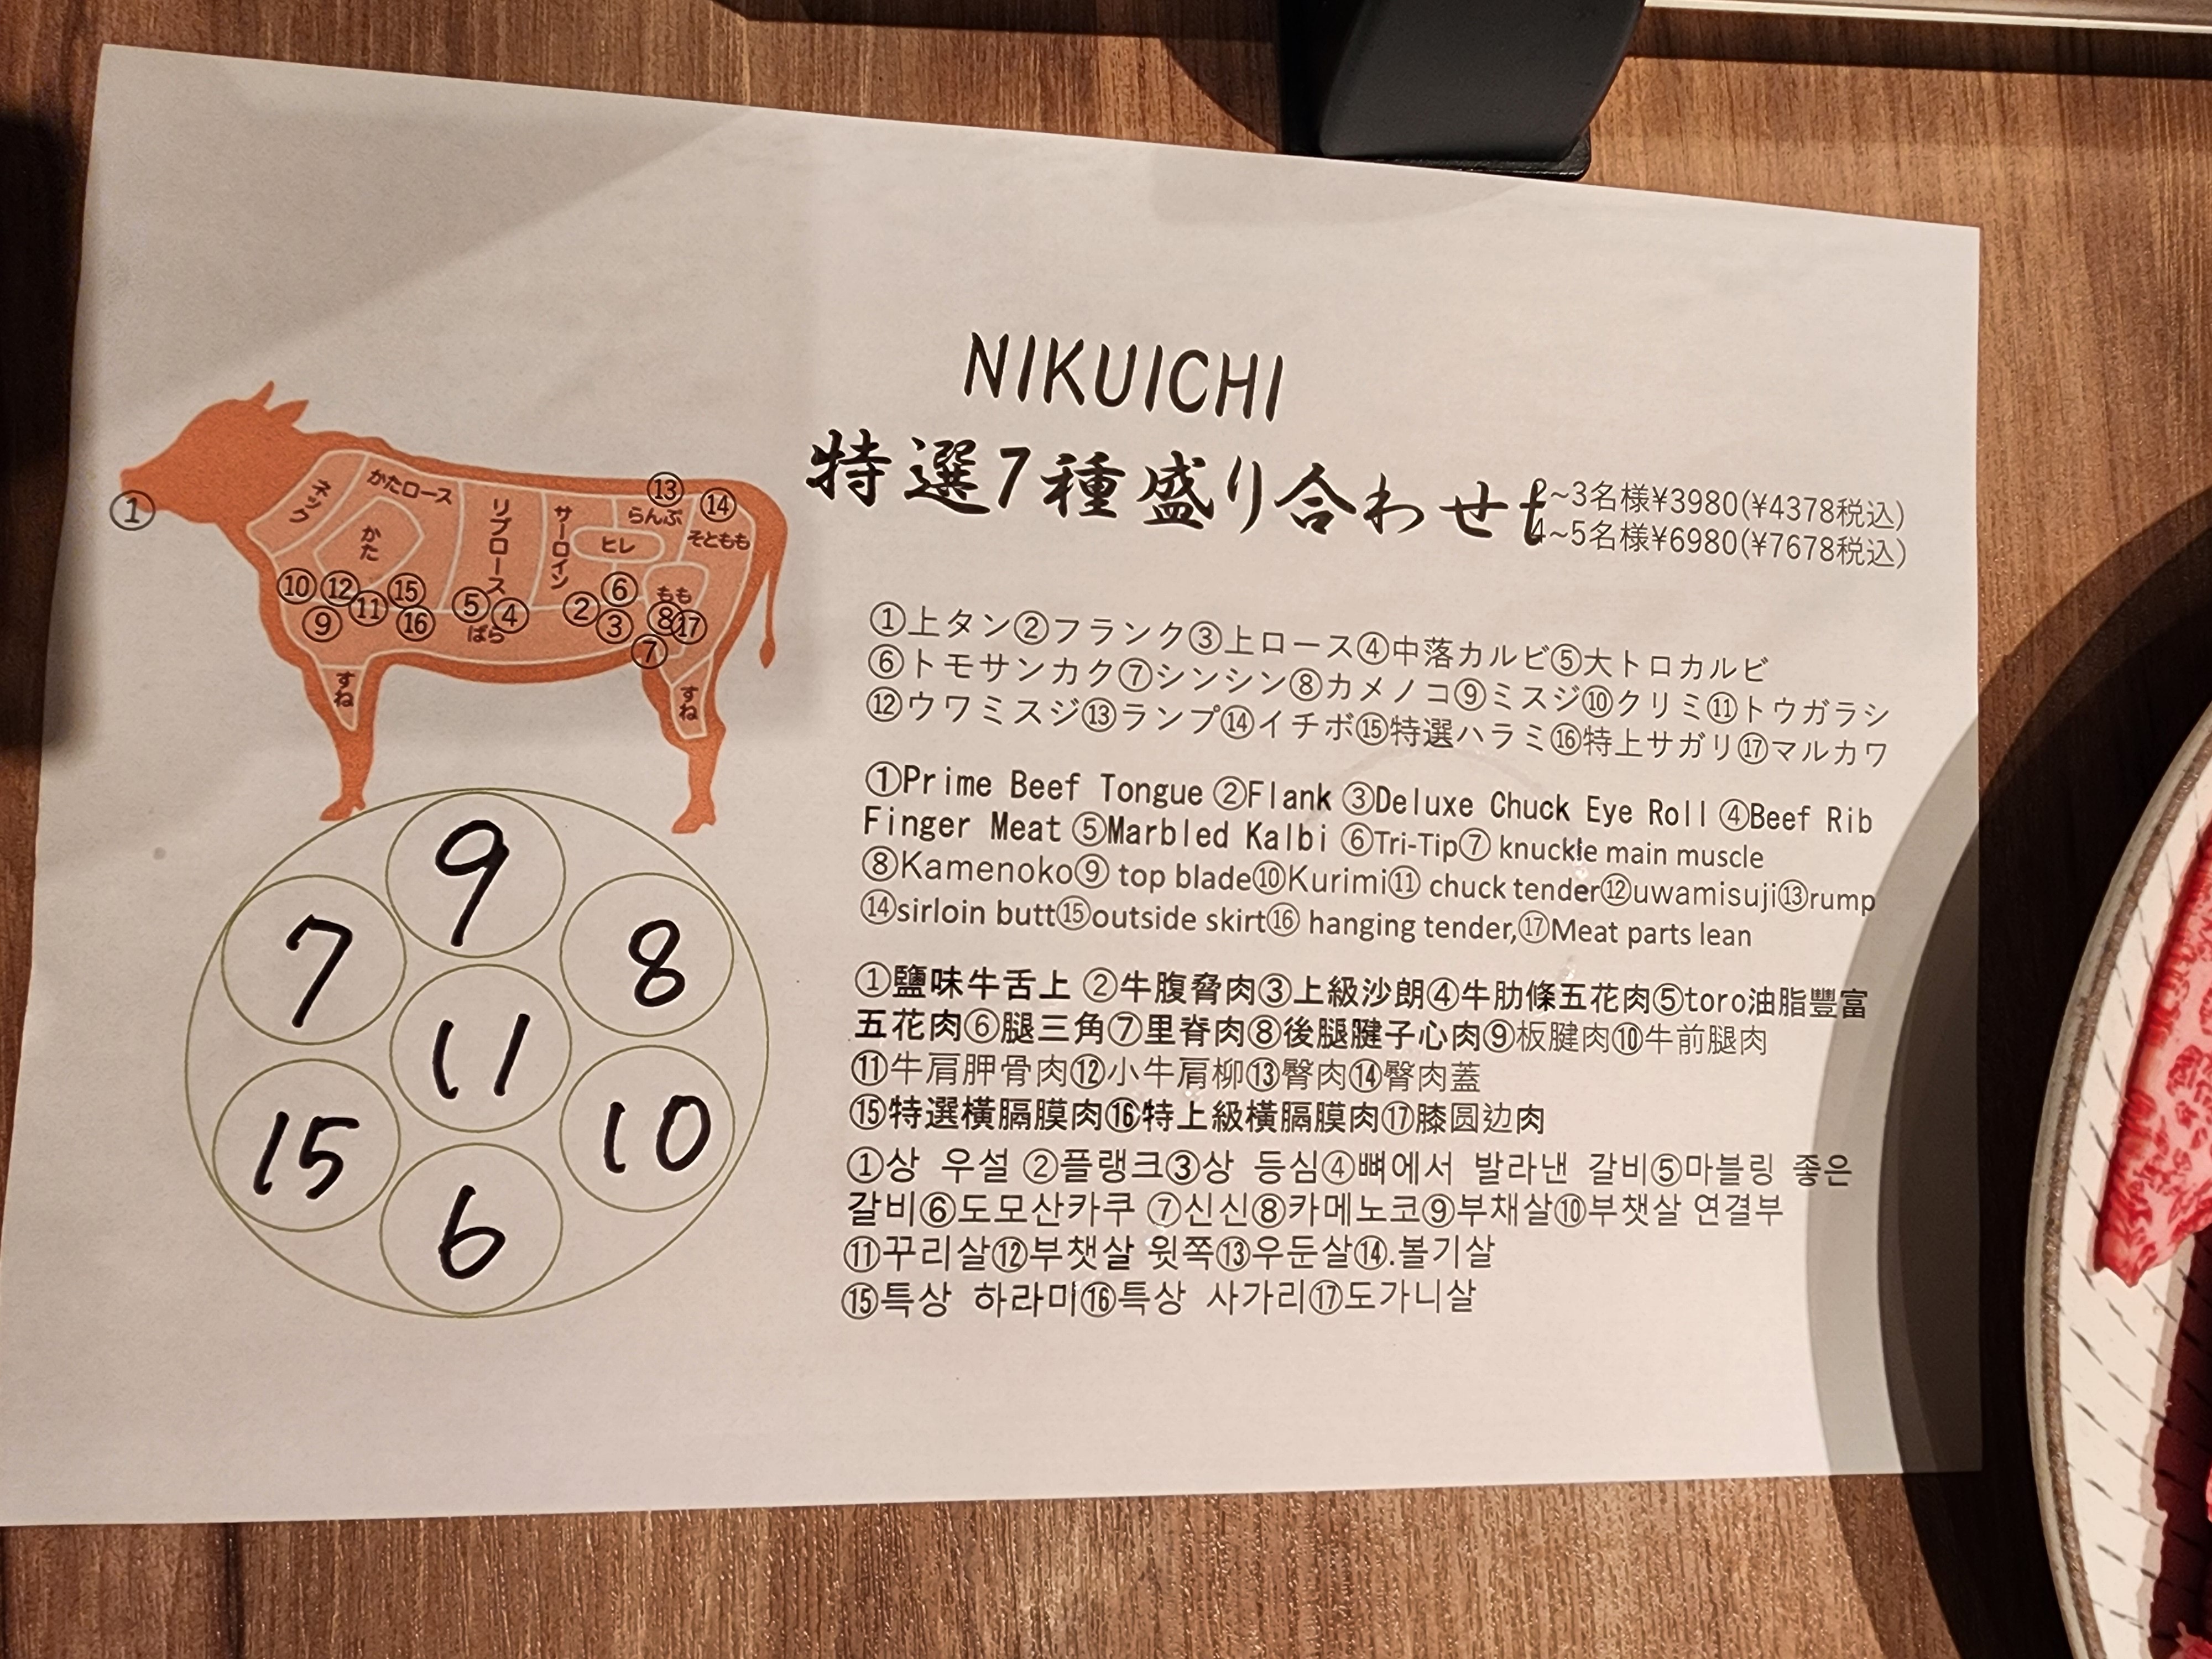 NIKUICHI
特選7種盛り合わせt
~3名様¥3980(¥4378税込)
4~5名様¥6980(¥7678税込)
①
ネック
かたロース
かた
リブロース
サーロイン
ヒレ
⑬
らんぷ
⑭
そともも
もも
ばら
すね
すね
⑩ ⑫ ⑮ ⑤ ④ ② ⑥
⑨ ⑪ ⑯ ③ ⑧ ⑰
⑦
①上タン②フランク③上ロース④中落カルビ⑤大トロカルビ
⑥トモサンカク⑦シンシン⑧カメノコ⑨ミスジ⑩クリミ⑪トウガラシ
⑫ウワミスジ⑬ランプ⑭イチボ⑮特選ハラミ⑯特上サガリ⑰マルカワ
①Prime Beef Tongue ②Flank ③Deluxe Chuck Eye Roll ④Beef Rib
Finger Meat ⑤Marbled Kalbi ⑥Tri-Tip⑦ knuckle main muscle
⑧Kamenoko⑨ top blade⑩Kurimi⑪ chuck tender⑫uwamisuji⑬rump
⑭sirloin butt⑮outside skirt⑯ hanging tender,⑰Meat parts lean
①鹽味牛舌上 ②牛腹脅肉③上級沙朗④牛肋條五花肉⑤toro油脂豐富
五花肉⑥腿三角⑦里脊肉⑧後腿腱子心肉⑨板腱肉⑩牛前腿肉
⑪牛肩胛骨肉⑫小牛肩柳⑬臀肉⑭臀肉蓋
⑮特選橫膈膜肉⑯特上級橫膈膜肉⑰膝圆边肉
①상 우설 ②플랭크③상 등심④뼈에서 발라낸 갈비⑤마블링 좋은
갈비⑥도모산카쿠 ⑦신신⑧카메노코⑨부채살⑩부챗살 연결부
⑪꾸리살⑫부챗살 윗쪽⑬우둔살⑭.볼기살
⑮특상 하라미⑯특상 사가리⑰도가니살
9
7
8
11
15
10
6